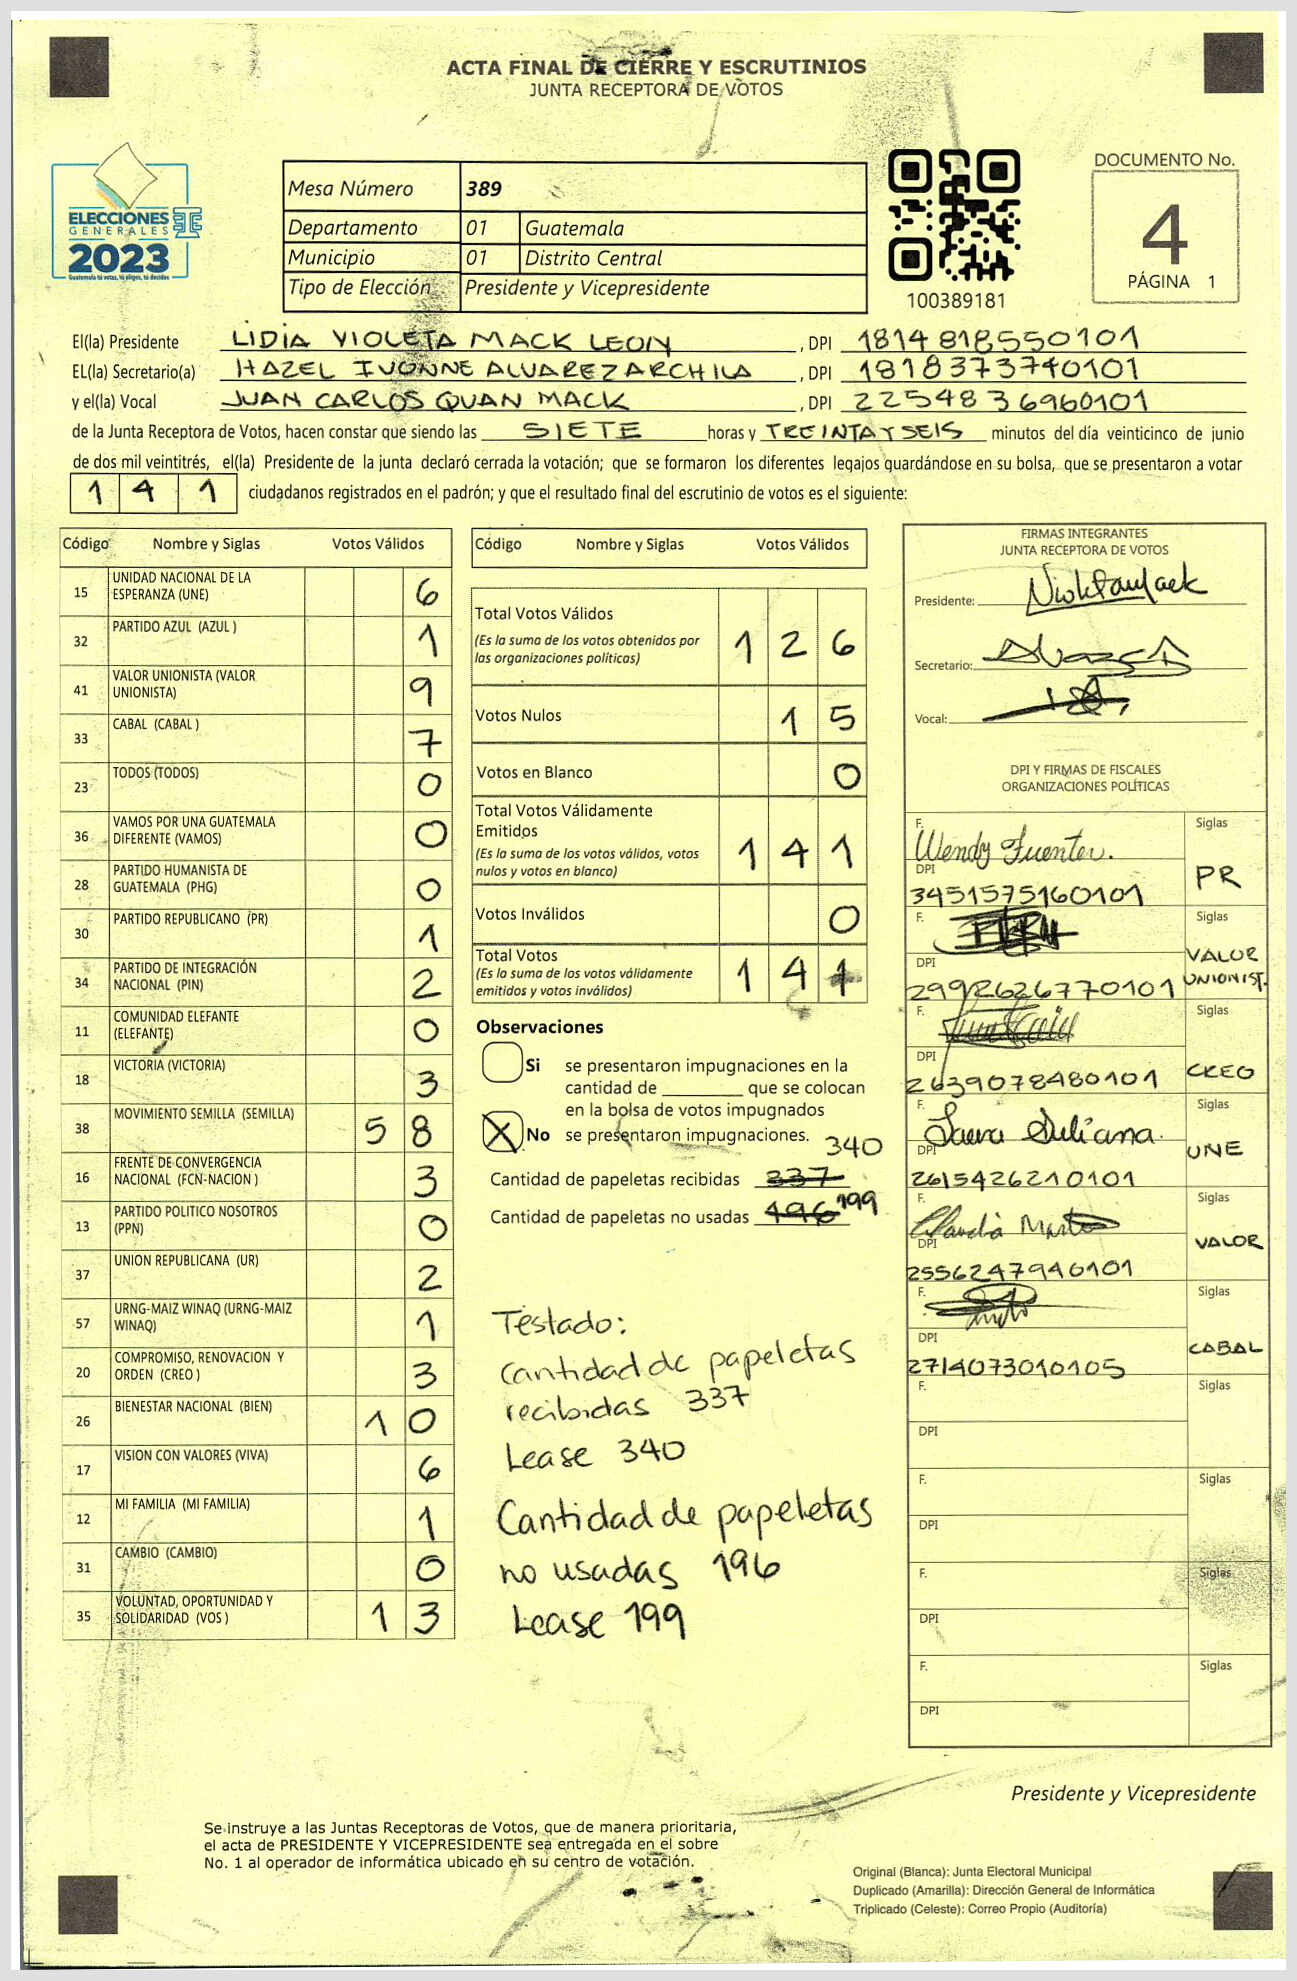 ACTA FINAL DE CIERRE Y ESCRUTINIOS
JUNTA RECEPTORA DE VOTOS
ELECCIONES
GENERALES
2023
Guatemala tú votas, tú eliges, tú decides
Mesa Número 389
Departamento 01 Guatemala
Municipio 01 Distrito Central
Tipo de Elección Presidente y Vicepresidente
100389181
DOCUMENTO No.
4
PÁGINA 1
El(la) Presidente LIDIA VIOLETA MACK LEON, DPI 1814818550101
EL(la) Secretario(a) HAZEL IVONNE ALVAREZ ARCHILA, DPI 1818373740101
y el(la) Vocal JUAN CARLOS QUAN MACK, DPI 2254836960101
de la Junta Receptora de Votos, hacen constar que siendo las SIETE horas y TREINTA Y SEIS minutos del día veinticinco de junio
de dos mil veintitrés, el(la) Presidente de la junta declaró cerrada la votación; que se formaron los diferentes legajos guardándose en su bolsa, que se presentaron a votar
141 ciudadanos registrados en el padrón; y que el resultado final del escrutinio de votos es el siguiente:
Código Nombre y Siglas Votos Válidos
15 UNIDAD NACIONAL DE LA ESPERANZA (UNE) 6
32 PARTIDO AZUL (AZUL ) 1
41 VALOR UNIONISTA (VALOR UNIONISTA) 9
33 CABAL (CABAL ) 7
23 TODOS (TODOS) 0
36 VAMOS POR UNA GUATEMALA DIFERENTE (VAMOS) 0
28 PARTIDO HUMANISTA DE GUATEMALA (PHG) 0
30 PARTIDO REPUBLICANO (PR) 1
34 PARTIDO DE INTEGRACIÓN NACIONAL (PIN) 2
11 COMUNIDAD ELEFANTE (ELEFANTE) 0
18 VICTORIA (VICTORIA) 3
38 MOVIMIENTO SEMILLA (SEMILLA) 58
16 FRENTE DE CONVERGENCIA NACIONAL (FCN-NACION ) 3
13 PARTIDO POLITICO NOSOTROS (PPN) 0
37 UNION REPUBLICANA (UR) 2
57 URNG-MAIZ WINAQ (URNG-MAIZ WINAQ) 1
20 COMPROMISO, RENOVACION Y ORDEN (CREO ) 3
26 BIENESTAR NACIONAL (BIEN) 10
17 VISION CON VALORES (VIVA) 6
12 MI FAMILIA (MI FAMILIA) 1
31 CAMBIO (CAMBIO) 0
35 VOLUNTAD, OPORTUNIDAD Y SOLIDARIDAD (VOS ) 13
Código Nombre y Siglas Votos Válidos
Total Votos Válidos 126
(Es la suma de los votos obtenidos por
las organizaciones políticas)
Votos Nulos 15
Votos en Blanco 0
Total Votos Válidamente
Emitidos 141
(Es la suma de los votos válidos, votos
nulos y votos en blanco)
Votos Inválidos 0
Total Votos 141
(Es la suma de los votos válidamente
emitidos y votos inválidos)
Observaciones
Si se presentaron impugnaciones en la
cantidad de ________ que se colocan
en la bolsa de votos impugnados
X No se presentaron impugnaciones.
340
Cantidad de papeletas recibidas 337
Cantidad de papeletas no usadas 196 199
Testado:
Cantidad de papeletas
recibidas 337
Lease 340
Cantidad de papeletas
no usadas 196
Lease 199
FIRMAS INTEGRANTES
JUNTA RECEPTORA DE VOTOS
Presidente:
Secretario:
Vocal:
DPI Y FIRMAS DE FISCALES
ORGANIZACIONES POLÍTICAS
F. Wendy Fuentes. Siglas
DPI 3451575160101 PR
F. Siglas
DPI 2992626770101 VALOR UNIONIST.
F. Siglas
DPI 2639078480101 CREO
F. Laura Juliana. Siglas
DPI 2615426210101 UNE
F. Claudia Siglas
DPI 2556247940101 VALOR
F. Siglas
DPI 2714073010105 CABAL
F. Siglas
DPI
F. Siglas
DPI
F. Siglas
DPI
F. Siglas
DPI
Presidente y Vicepresidente
Se instruye a las Juntas Receptoras de Votos, que de manera prioritaria,
el acta de PRESIDENTE Y VICEPRESIDENTE sea entregada en el sobre
No. 1 al operador de informática ubicado en su centro de votación.
Original (Blanca): Junta Electoral Municipal
Duplicado (Amarilla): Dirección General de Informática
Triplicado (Celeste): Correo Propio (Auditoría)